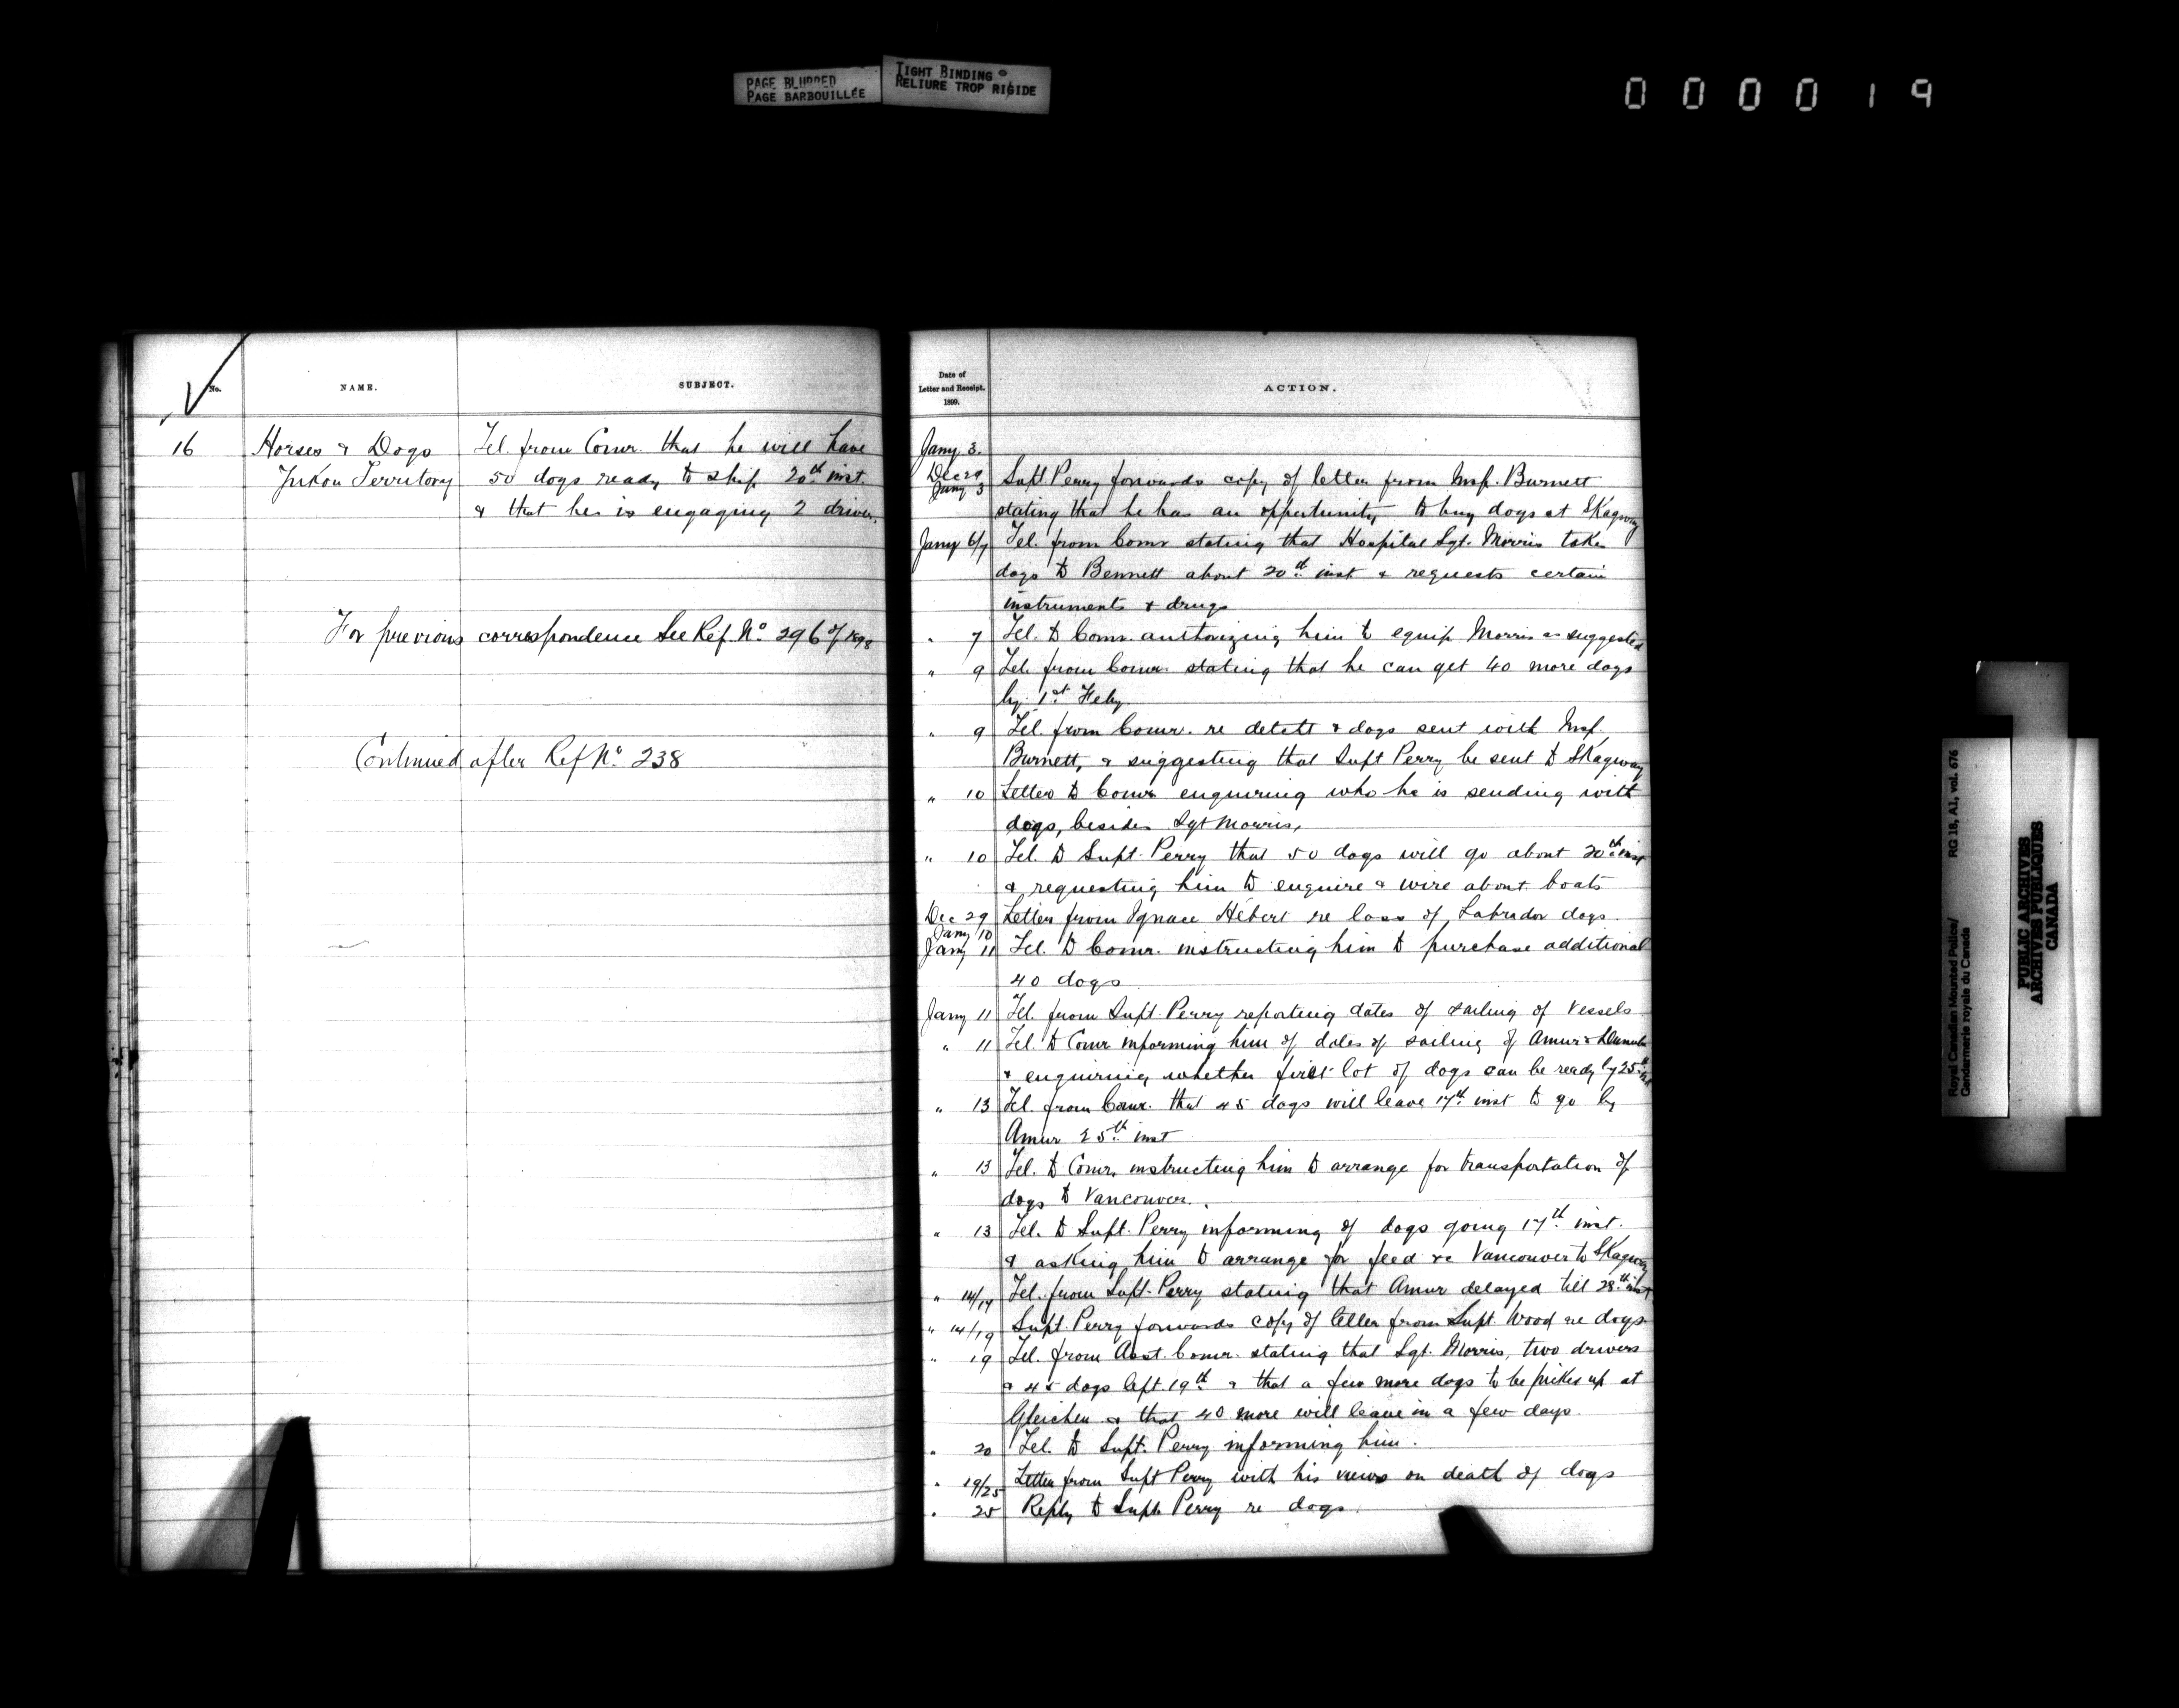 PAGE BLURRED
PAGE BARBOUILLÉE
TIGHT BINDING
RELIURE TROP RIGIDE
000019
No.
NAME.
SUBJECT.
16
Horses & Dogs
Yukon Territory
Tel. from Comr. that he will have
50 dogs ready to ship 20th inst.
& that he is engaging 2 drivers.
For previous correspondence See Ref. No. 296 of 1898
Continued after Ref No. 238
Date of
Letter and Receipt.
1899.
ACTION.
Jany 3.
Dec 29
Jany 3 Supt. Perry forwards copy of letter from Insp. Burnett
stating that he has an opportunity to buy dogs at Skagway
Jany 6/7 Tel. from Comr stating that Hospital Sgt. Morris takes
dogs to Bennett about 20th inst & requests certain
instruments & drugs
" 7 Tel. to Comr. authorizing him to equip Morris as suggested
" 9 Tel. from Comr. stating that he can get 40 more dogs
by 1st Feby.
" 9 Tel. from Comr. re detcht & dogs sent with Insp.
Burnett, & suggesting that Supt Perry be sent to Skagway
" 10 Letter to Comr enquiring who he is sending with
dogs, besides Sgt Morris,
" 10 Tel. to Supt. Perry that 50 dogs will go about 20th inst
& requesting him to enquire & wire about boats
Dec 29
Jany 10 Letter from Ignace Hébert re loss of Labrador dogs.
Jany 11 Tel. to Comr. instructing him to purchase additional
40 dogs
Jany 11 Tel. from Supt. Perry reporting dates of sailing of Vessels
" 11 Tel. to Comr informing him of dates of sailing of Amur &
& enquiring whether first lot of dogs can be ready by 25th inst
" 13 Tel. from Comr. that 45 dogs will leave 17th inst to go by
Amur 25th inst
" 13 Tel. to Comr. instructing him to arrange for transportation of
dogs to Vancouver.
" 13 Tel. to Supt. Perry informing of dogs going 17th inst.
& asking him to arrange for feed &c Vancouver to Skagway
" 14/14 Tel. from Supt. Perry stating that Amur delayed till 28th inst
" 14/19 Supt. Perry forwards copy of letter from Supt. Wood re dogs
" 19 Tel. from Asst. Comr. stating that Sgt. Morris, two drivers
& 45 dogs left 19th & that a few more dogs to be picked up at
Gleichen & that 40 more will leave in a few days.
" 20 Tel. to Supt. Perry informing him.
" 19/25 Letter from Supt Perry with his views on death of dogs
" 25 Reply to Supt. Perry re dogs.
Royal Canadian Mounted Police/
Gendarmerie royale du Canada
RG 18, A1, vol. 676
PUBLIC ARCHIVES
ARCHIVES PUBLIQUES
CANADA